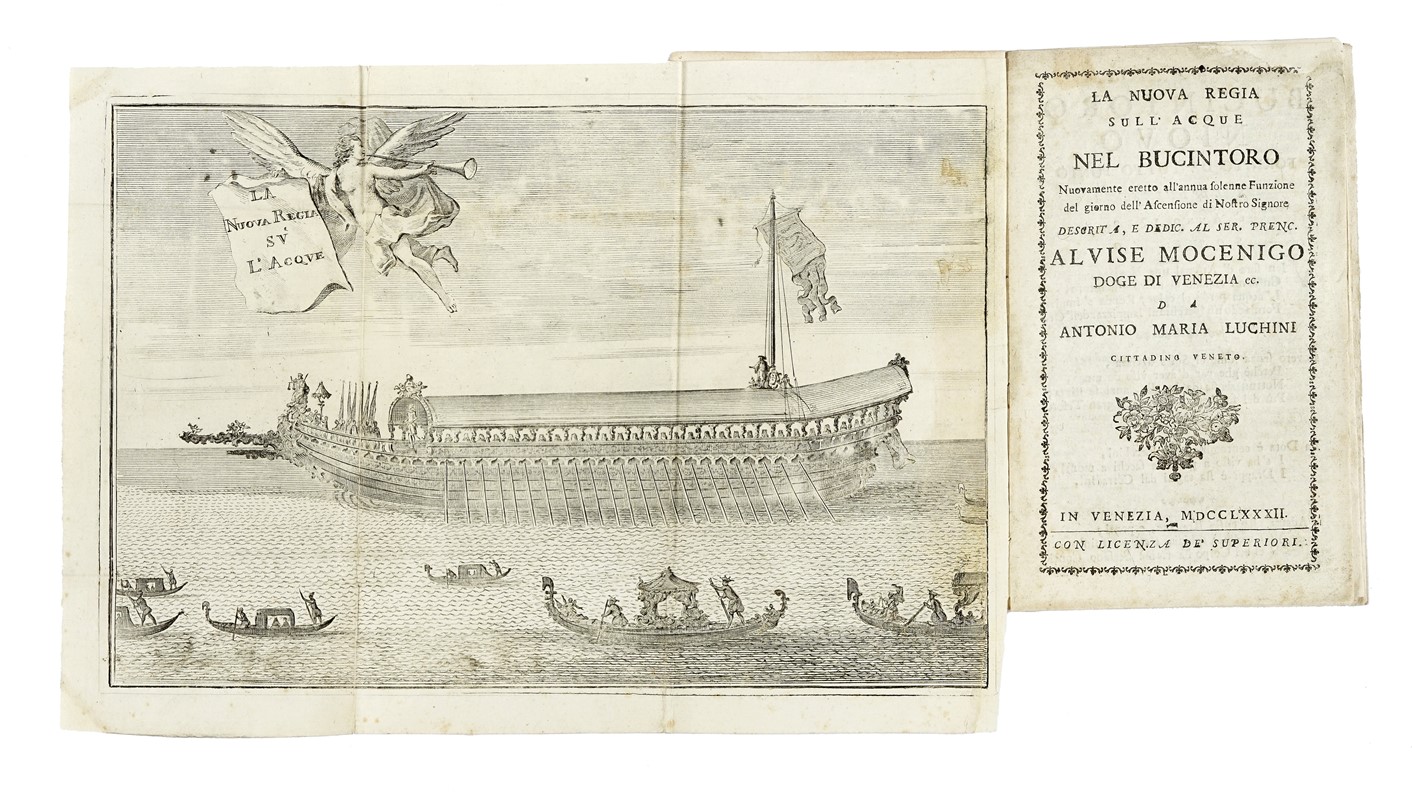 LA
NUOVA REGIA
SV̀
L'ACQVE
LA NUOVA REGIA
SULL' ACQUE
NEL BUCINTORO
Nuovamente eretto all'annua ſolenne Funzione
del giorno dell'Aſcenſione di Noſtro Signore
DESCRITA, E DEDIC. AL SER. PRENC.
ALVISE MOCENIGO
DOGE DI VENEZIA ec.
D A
ANTONIO MARIA LUCHINI
CITTADINO VENETO.
IN VENEZIA, MDCCLXXXII.
CON LICENZA DE' SUPERIORI.